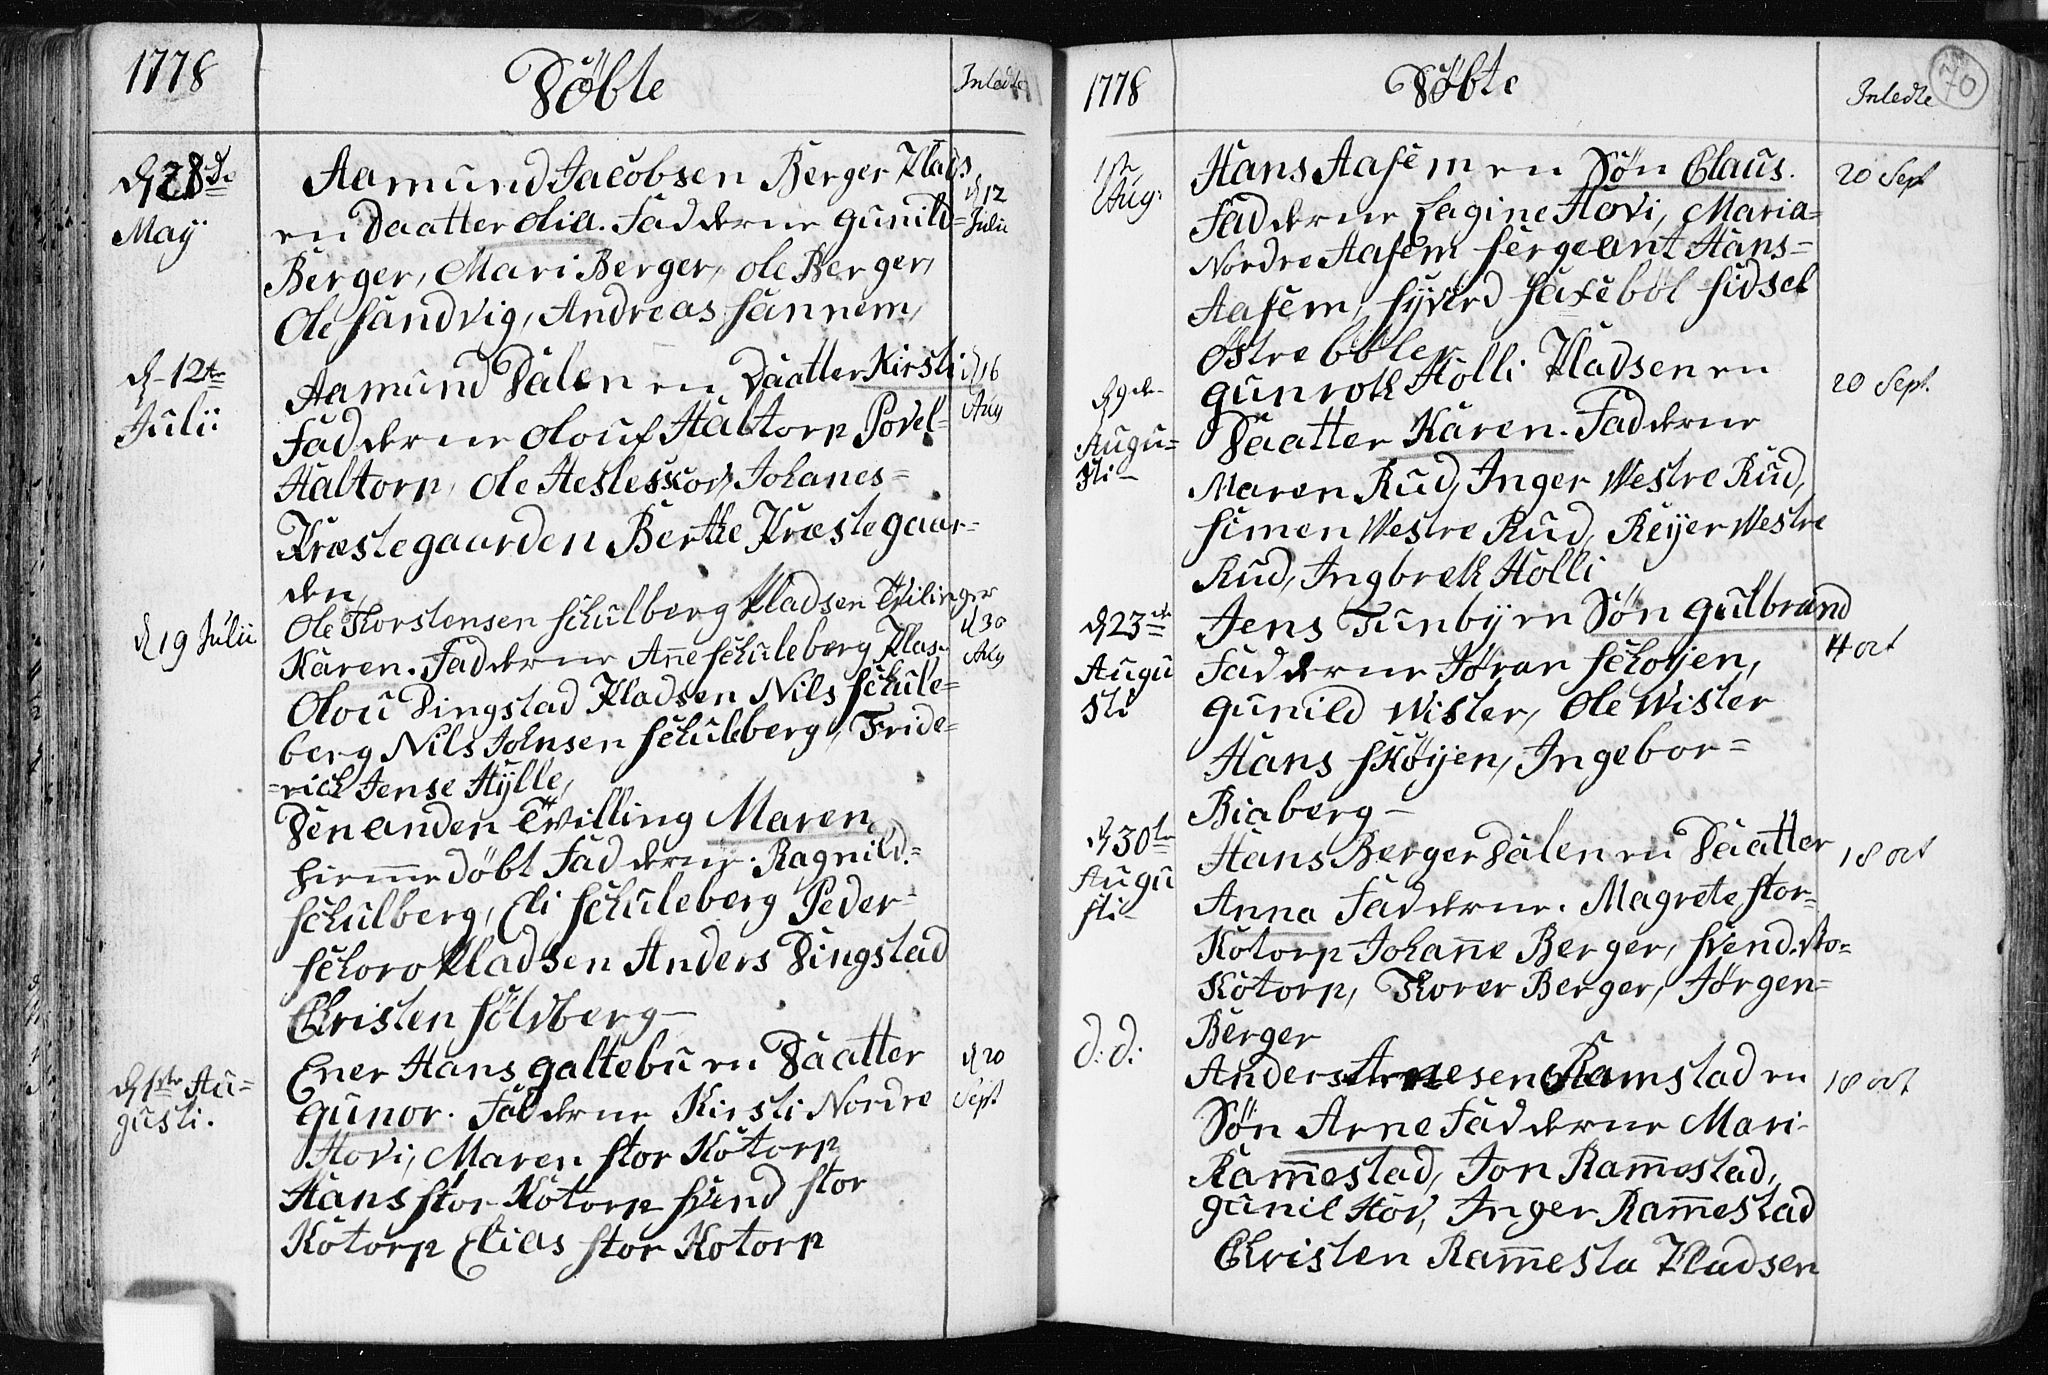 1778
Döbte
Inledte
d 28de
May
Aamund Jacobsen Berger Plads
en Daatter Olia. Fadderne Gunild=
Berger, Mari Berger, Ole Berger,
Ole Sandvig, Andreas Sannem,
d 12
Julii
d 12te
Julii
Aamund Dalen en Daatter Kirsti
Fadderne Olouf Haltorp Povel=
Haltorp, Ole Hesleskov, Johanes=
Præstegaarden Berthe Præstegaar=
den,
d 16
Aug
d 19 Julii
Ole Thorstensen Schulberg Pladsen Tvilinger
Karen. Fadderne Anne Schuleberg Plas.
Olou Dingstad Pladsen Nils Schule=
berg Nils Johnsen Schuleberg, Fride=
=rich Jense Hylle,
Den anden Tvilling Maren
hiemmedöbt Fadderne. Ragnild=
Schulberg, Eli Schuleberg Peder=
Schoro Pladsen Anders Dingstad
Christen Sölvberg—
d 30
Aug
d 1ste Au=
gusti.
Ener Hans Galtebu en Daatter
Gunor. Fadderne Kirsti Nordre
Hovi, Maren Stor Kotorp
Hans Stor Kotorp Svend Stor
Kotorp Elias Stor Kotorp
d 20
Sept
1778
Döbte
Inledte
70
1ste
Aug:
Hans Aasem en Søn Claus.
Fadderne Eagine Hovi, Maria=
Nordre Aasem Sergeant Hans=
Aasem, Syverd Saxeböl Sidsel
Østreböler
20 Sept
d 9de
Augu=
sti—
Gunroth Holli Pladsen en
Daatter Karen. Fadderne
Maren Rud, Inger Westre Rud,
Simen Westre Rud, Reyer Westre
Rud, Ingbreth Holli
20 Sept.
d 23de
Augu
sti
Jens Tunby en Søn Gulbrand
Fadderne Jöran Schoyen,
Gunild Wister, Ole Wister
Hans Sköyen, Ingebor=
Biaberg—
4 oct
d 30te
Augu
sti—
Hans Berger Dalen en Daatter
Anna Fadderne. Magrete Stor=
Kotorp Johanne Berger, Svend Sto=
Kotorp, Thorer Berger, Jörgen=
Berger
18 oct
d: d:
Anders Arnesen Ramstad en
Søn Arne Fadderne Mari
Rammestad, Jon Rammestad,
Gunil Hov, Inger Rammestad
Christen Rammesta Pladsen
18 oct